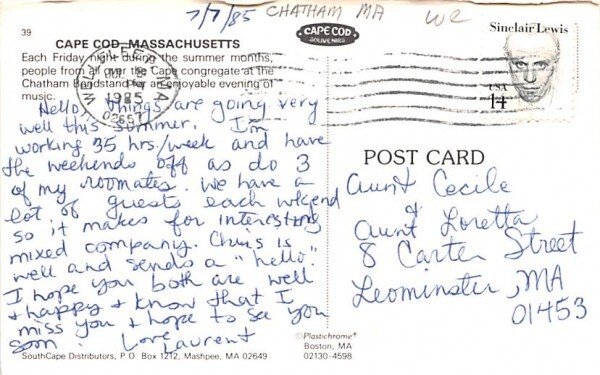 7/7/85 CHATHAM MA
39
CAPE COD
SOUVENIRS
Sinclair Lewis
USA
14
CAPE COD, MASSACHUSETTS
Each Friday night during the summer months,
people from all over the Cape congregate at the
Chatham Bandstand for an enjoyable evening of
music.
WELLFLEET MA
JUL
1985
02667
Hello, things are going very
well this summer. I'm
working 35 hrs/week and have
the weekends off as do 3
of my roommates. We have a
lot of guests each wkend
so it makes for interesting
mixed company. Chris is
well and sends a "hello".
I hope you both are well
& happy & know that I
miss you & hope to see you
soon. Love
Laurent
POST CARD
Aunt Cecile
&
Aunt Loretta
8 Carter Street
Leominster, MA
01453
© Plastichrome®
Boston, MA
02130-4598
SouthCape Distributors, P.O. Box 1212, Mashpee, MA 02649